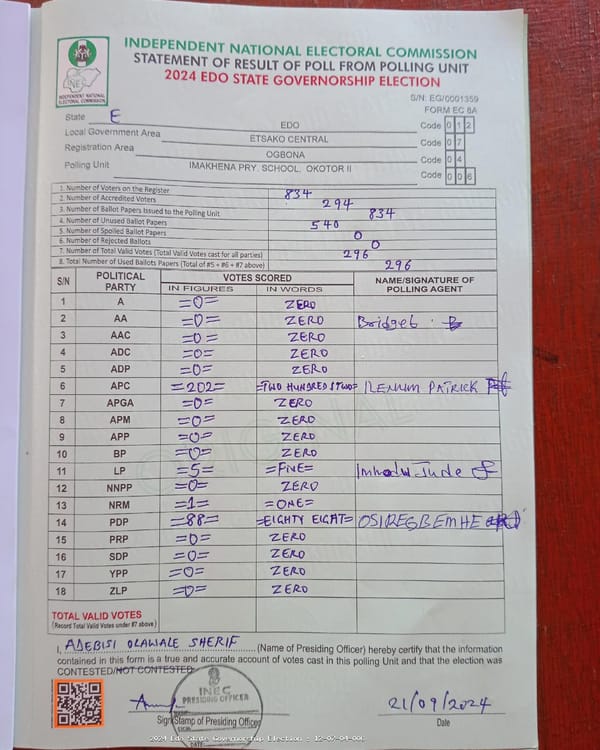 INDEPENDENT NATIONAL ELECTORAL COMMISSION
STATEMENT OF RESULT OF POLL FROM POLLING UNIT
2024 EDO STATE GOVERNORSHIP ELECTION
INEC
INDEPENDENT NATIONAL ELECTORAL COMMISSION
S/N: EG/0001359
FORM EC 8A
State E EDO Code 0 1 2
Local Government Area ETSAKO CENTRAL Code 0 7
Registration Area OGBONA Code 0 4
Polling Unit IMAKHENA PRY. SCHOOL, OKOTOR II Code 0 0 6
1. Number of Voters on the Register 834
2. Number of Accredited Voters 294
3. Number of Ballot Papers Issued to the Polling Unit 834
4. Number of Unused Ballot Papers 540
5. Number of Spoiled Ballot Papers 0
6. Number of Rejected Ballots 0
7. Number of Total Valid Votes (Total Valid Votes cast for all parties) 296
8. Total Number of Used Ballots Papers (Total of #5 + #6 + #7 above) 296
S/N POLITICAL PARTY VOTES SCORED NAME/SIGNATURE OF POLLING AGENT
IN FIGURES IN WORDS
1 A =0= ZERO
2 AA =0= ZERO Bridget
3 AAC =0= ZERO
4 ADC =0= ZERO
5 ADP =0= ZERO
6 APC =202= =TWO HUNDRED $ TWO= PATRICK
7 APGA =0= ZERO
8 APM =0= ZERO
9 APP =0= ZERO
10 BP =0= ZERO
11 LP =5= =FIVE= Jude
12 NNPP =0= ZERO
13 NRM =1= =ONE=
14 PDP =88= =EIGHTY EIGHT= OSIREGBEMHE
15 PRP =0= ZERO
16 SDP =0= ZERO
17 YPP =0= ZERO
18 ZLP =0= ZERO
TOTAL VALID VOTES
(Record Total Valid Votes under #7 above)
I, ADEBISI OLAWALE SHERIF (Name of Presiding Officer) hereby certify that the information
contained in this form is a true and accurate account of votes cast in this polling Unit and that the election was
CONTESTED/NOT CONTESTED
INEC
PRESIDING OFFICER
21/09/2024
Sign/Stamp of Presiding Officer Date
DATE:
2024 Edo State Governorship Election : 12-07-04-006